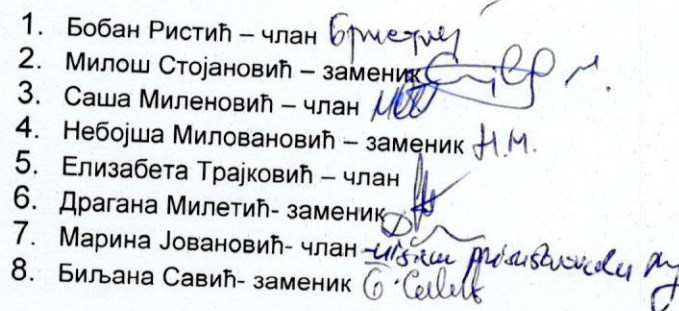 1. Бобан Ристић – члан
2. Милош Стојановић – заменик
3. Саша Миленовић – члан
4. Небојша Миловановић – заменик Н.М.
5. Елизабета Трајковић – члан
6. Драгана Милетић- заменик
7. Марина Јовановић- члан
8. Биљана Савић- заменик